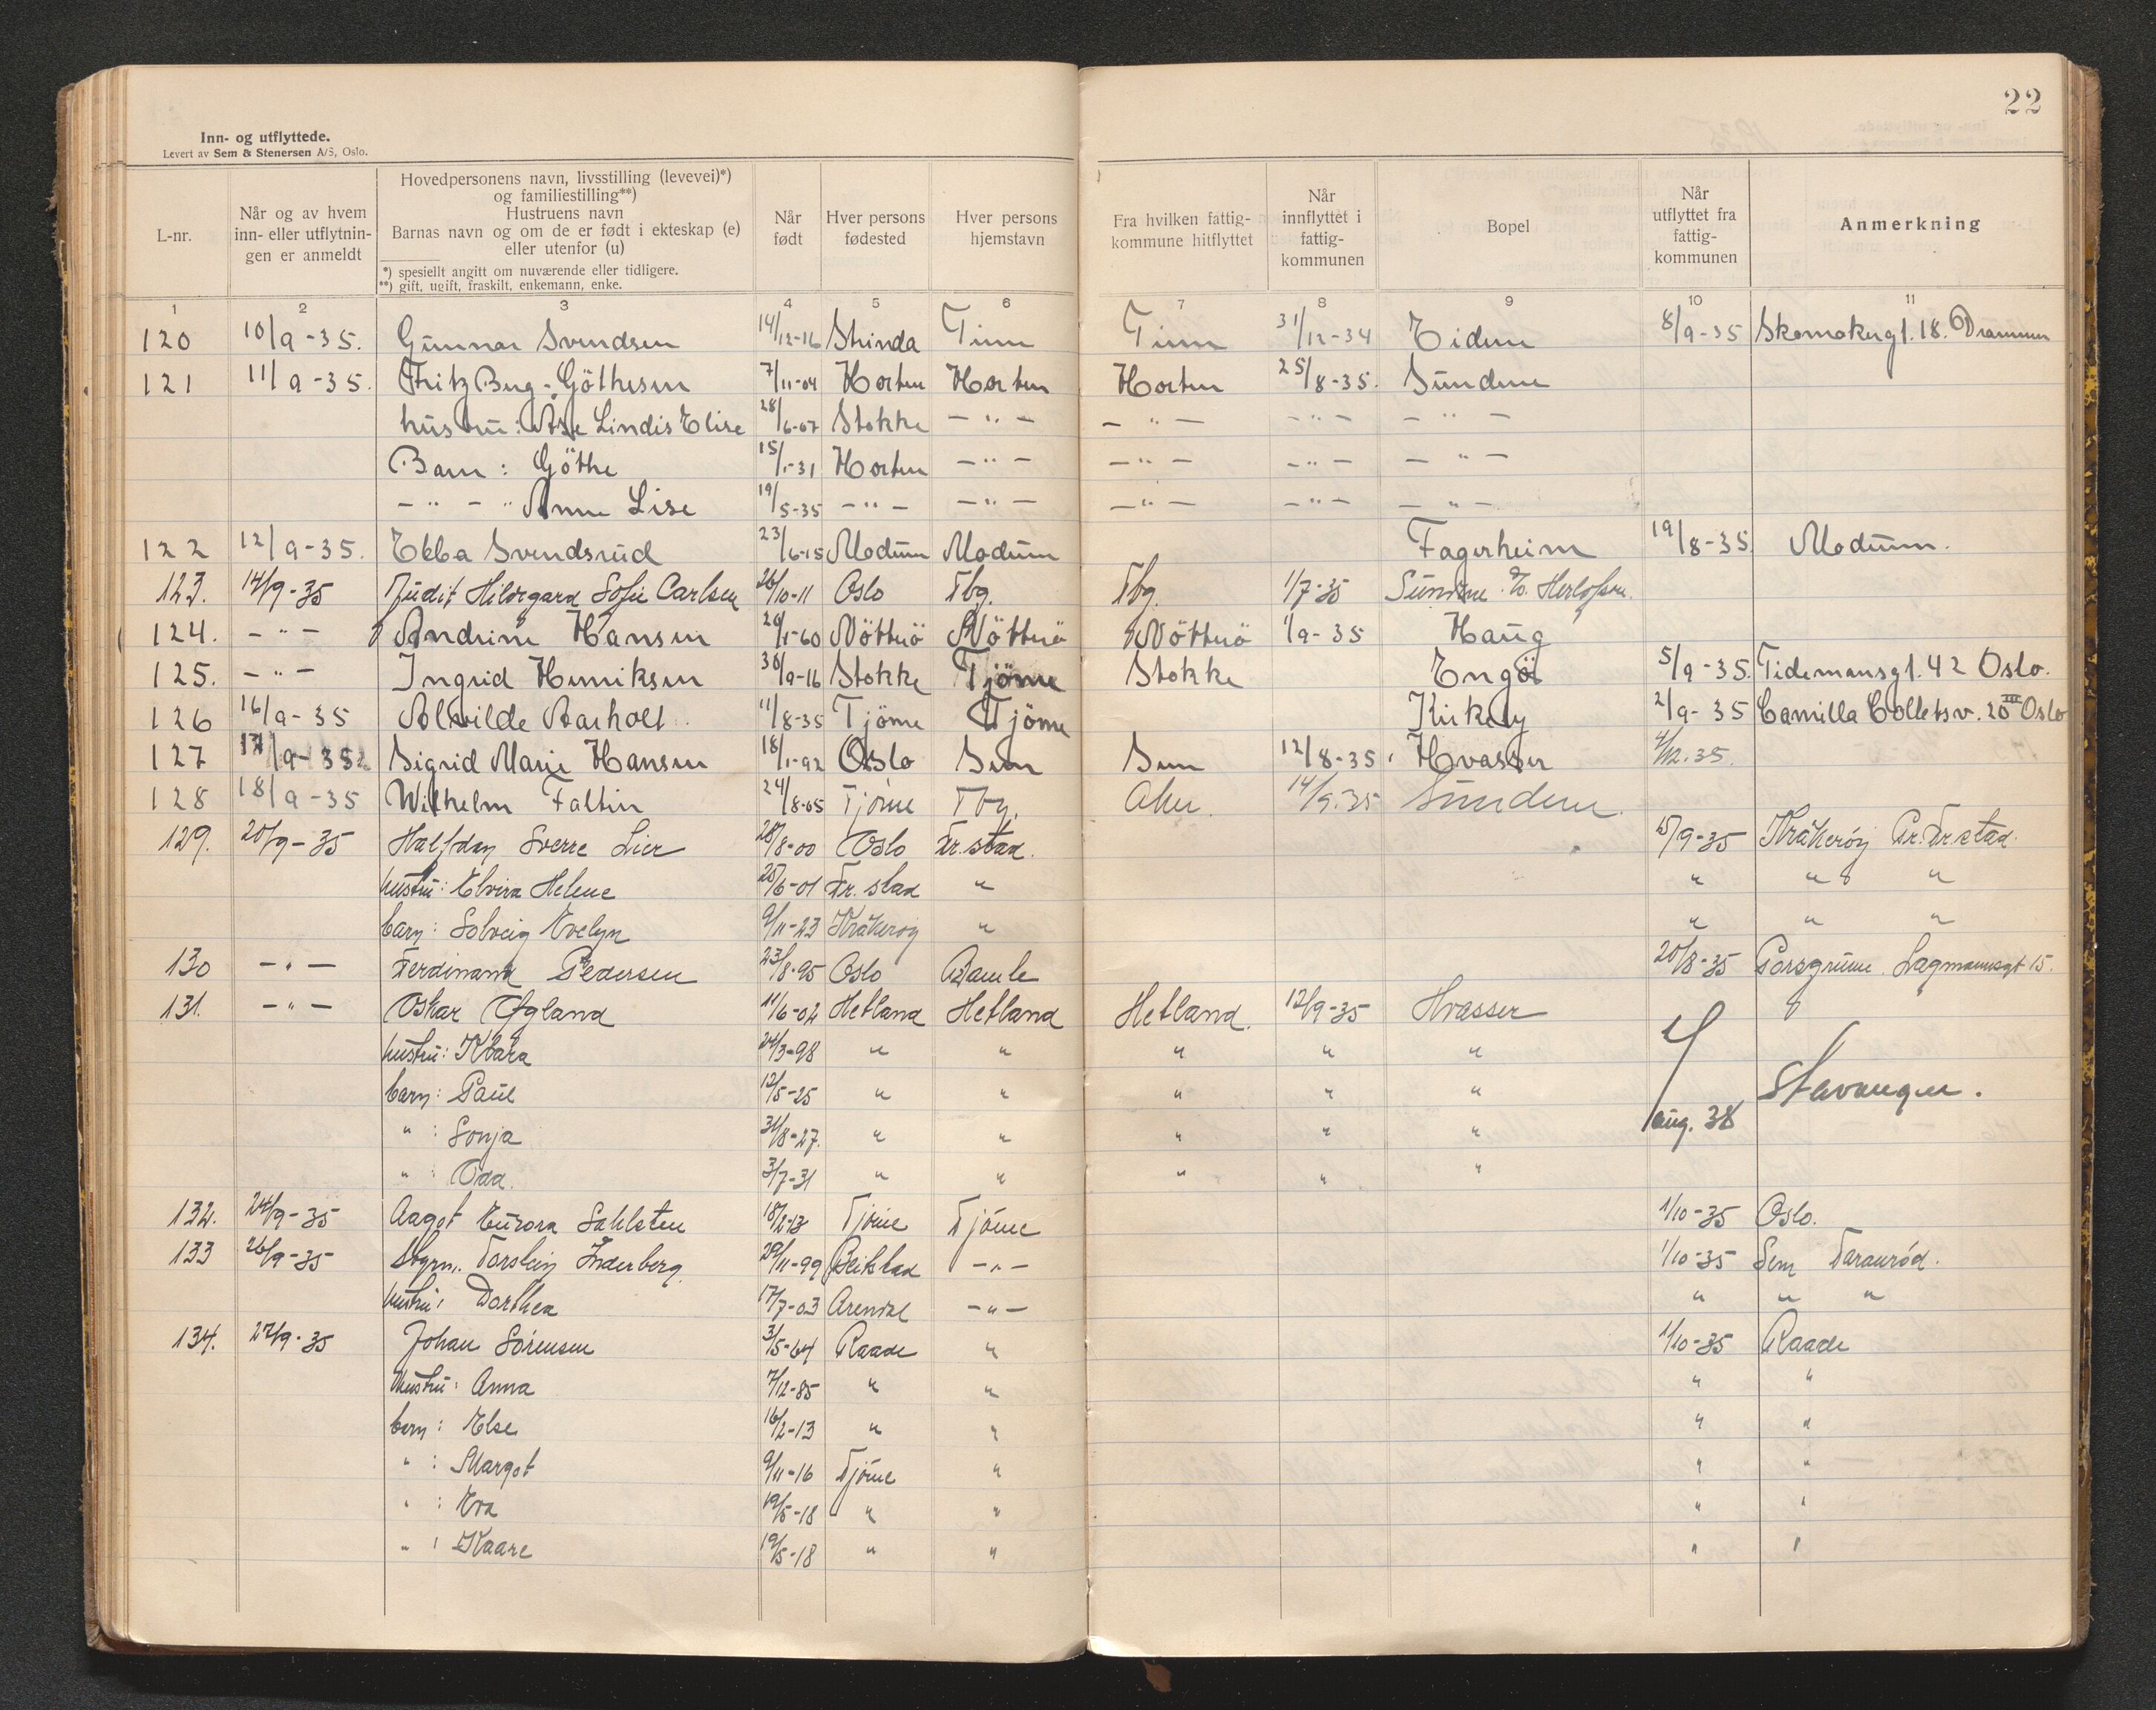 22
Inn- og utflyttede.
Levert av Sem & Stenersen A/S, Oslo.
L-nr.
Når og av hvem inn- eller utflytnin- gen er anmeldt
Hovedpersonens navn, livsstilling (levevei)*) og familiestilling**) Hustruens navn Barnas navn og om de er født i ekteskap (e) eller utenfor (u)
*) spesiellt angitt om nuværende eller tidligere.
**) gift, ugift, fraskilt, enkemann, enke.
Når født
Hver persons fødested
Hver persons hjemstavn
Fra hvilken fattig- kommune hitflyttet
Når innflyttet i fattig- kommunen
Bopel
Når utflyttet fra fattig- kommunen
Anmerkning
1 2 3 4 5 6 7 8 9 10 11
120 10/9-35. Gunnar Svendsen 14/12-16 Strinda Tinn Tinn 31/12-34 Eidene 8/9-35 Skomakergt. 18. Drammen
121 11/9-35. Fritz Bug-Göthesen 7/11-04 Horten Horten Horten 25/8-35. Sundene
hustru: Åse Lindis Elise 28/6-07 Stokke -"- -"- -"- -"-
Barn: Göthe 15/1-31 Horten -"- -"- -"- -"-
-"- " Anne Lise 19/5-35 -"- -"- -"- -"- -"-
122 12/9-35. Ebba Svendsrud 23/6-15 Modum Modum Fagerheim 19/8-35 Modum.
123. 14/9-35 Judit Hildegard Sofie Carlsen 26/10-11 Oslo Tbg. Tbg. 1/7-35 Sundene
124. -"- Andrine Hansen 20/1-60 Nötterö Nötterö Nötterö 1/9-35 Haug
125. -"- Ingrid Henriksen 30/9-16 Stokke Tjöme Stokke Engö 5/9-35. Tidemansgt. 42 Oslo.
126 16/9-35 Alvilde Aarholt 11/8-35 Tjöme Tjöme Kirkely 2/9-35 Camilla Colletsv. 20 III Oslo
127 17/9-35 Sigrid Marie Hansen 18/1-92 Oslo Sem Sem 12/8-35. Hvasser 4/12.35.
128 18/9-35 Wilhelm Faltin 24/8-05 Tjöme Tbg. Aker. 14/9.35 Sundene.
129. 20/9-35 Halfdan Sverre Lier 28/8-00 Oslo Fr.stad. 15/9-35 Kråkeröy Pr. Fr.stad.
hustru: Elvira Helene 25/6-01 Fr.stad " " " "
barn: Solveig Evelyn 9/11-23 Kråkeröy " " " "
130 -"- Ferdinand Pedersen 23/8-95 Oslo Bamle 20/8-35 Porsgrunn. Lagmannsgt 15.
131. -"- Oskar Øgland 11/6-02 Hetland Hetland Hetland. 12/9-35 Hvasser
hustru: Klara 24/3-98 " " " " "
barn: Paul 12/5-25 " " " " " Stavanger.
" : Sonja 31/8-27. " " " " " aug. 38
" : Odd. 3/7-31 " " " " "
132. 24/9-35 Aagot Eurora Sahlsten 18/2-13 Tjöme Tjöme 1/10-35 Oslo.
133 26/9-35 Styrm. Torstein Inderberg. 29/11-99 Beitstad -"- 1/10-35 Sem Taranröd.
hustru: Dorthea 17/7-03 Arendal -"- " " "
134. 27/9-35 Johan Sörensen 3/5-64 Raade " 1/10-35 Raade
hustru: Anna 7/12-85 " " " "
barn: Else 16/2-13 " " " "
" : Margot 9/11-16 Tjöme " " "
" : Eva 19/5-18 " " " "
" : Kaare 19/5-18 " " " "